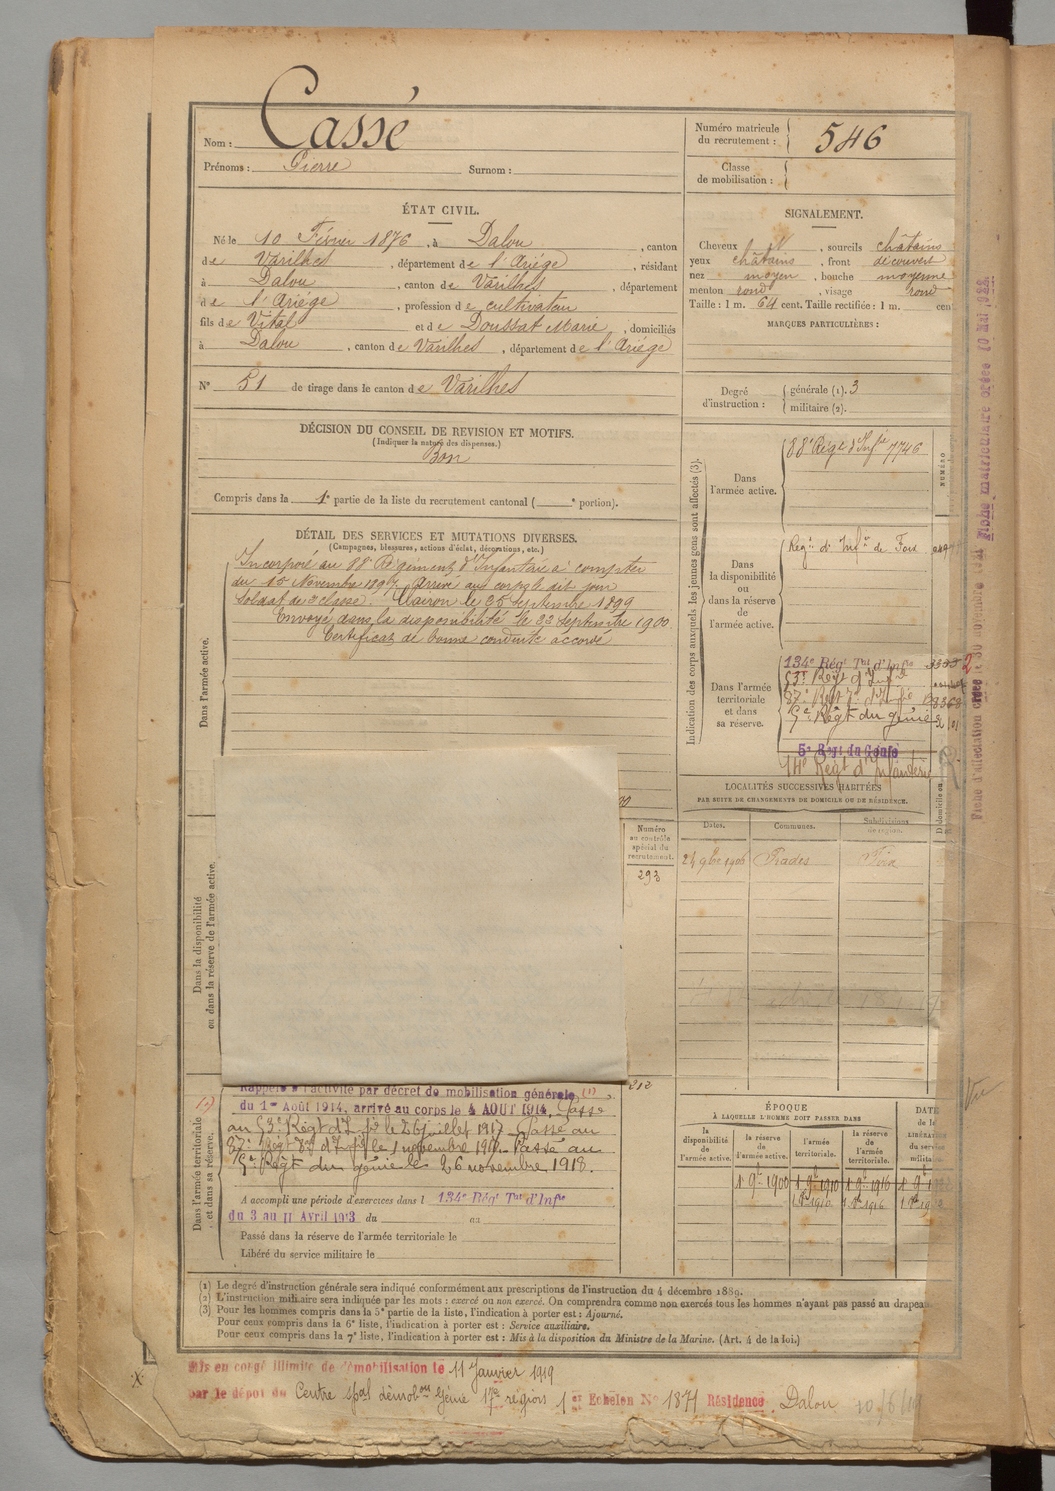 Nom : Cassé
Prénoms : Pierre Surnom :
Numéro matricule du recrutement : 546
Classe de mobilisation :
ÉTAT CIVIL.
Né le 10 Février 1876, à Dalou, canton
de Varilhes, département de l'Ariége, résidant
à Dalou, canton de Varilhes, département
de l'Ariége, profession de cultivateur
fils de Vital et de Doussat Marie, domiciliés
à Dalou, canton de Varilhes, département de l'Ariége
N° 51 de tirage dans le canton de Varilhes
SIGNALEMENT.
Cheveux , sourcils châtains
yeux châtains, front découvert
nez moyen, bouche moyenne
menton rond, visage rond
Taille : 1 m. 64 cent. Taille rectifiée : 1 m. cent
MARQUES PARTICULIÈRES :
Degré d'instruction : générale (1). 3
militaire (2).
DÉCISION DU CONSEIL DE REVISION ET MOTIFS.
(Indiquer la nature des dispenses.)
Bon
Compris dans la 1e partie de la liste du recrutement cantonal ( e portion).
DÉTAIL DES SERVICES ET MUTATIONS DIVERSES.
(Campagnes, blessures, actions d'éclat, décorations, etc.)
Dans l'armée active.
Incorporé au 88e Régiment d'Infanterie à compter
du 15 Novembre 1897. Arrivé au corps le dit jour
Soldat de 2e classe. Clairon le 25 Septembre 1899
Envoyé dans la disponibilité le 22 Septembre 1900.
Certificat de bonne conduite accordé
Indication des corps auxquels les jeunes gens sont affectés (3).
Dans l'armée active.
88e Régt d'Infie 7746
NUMÉRO
Dans la disponibilité ou dans la réserve de l'armée active.
Régt d'Infie de Foix
Dans l'armée territoriale et dans sa réserve.
134e Régt Tal d'Infie
53e Régt d'Infie
57e Régt Tal d'Infie
5e Régt du génie
5e Régt du Génie
14e Régt d'Infanterie
LOCALITÉS SUCCESSIVES HABITÉES
PAR SUITE DE CHANGEMENTS DE DOMICILE OU DE RÉSIDENCE.
Dates. Communes. Subdivisions de région. D domicile ou
24 9bre 1906 Prades Foix
Numéro au contrôle spécial du recrutement.
293
212
Dans la disponibilité ou dans la réserve de l'armée active.
Dans l'armée territoriale et dans sa réserve.
Rappelé à l'activité par décret de mobilisation générale (1)
du 1er Août 1914, arrivé au corps le 4 AOUT 1914. Passé
au 53e Régt d'Infie le 26 juillet 1917. Passé au
57e Régt Tal d'Infie le 1 novembre 1917. Passé au
5e Régt du génie le 26 novembre 1918.
A accompli une période d'exercices dans l 134e Rég Tal d'Infie
du 3 au 11 Avril 1913 du au
Passé dans la réserve de l'armée territoriale le
Libéré du service militaire le
ÉPOQUE
À LAQUELLE L'HOMME DOIT PASSER DANS
la disponibilité de l'armée active. la réserve de l'armée active. l'armée territoriale. la réserve de l'armée territoriale.
DATE de la LIBÉRATION du service militaire
1 9bre 1900 1 9bre 1910 1 9bre 1916
1 9bre 1910 1 9bre 1916
(1) Le degré d'instruction générale sera indiqué conformément aux prescriptions de l'instruction du 4 décembre 1889.
(2) L'instruction militaire sera indiquée par les mots : exercé ou non exercé. On comprendra comme non exercés tous les hommes n'ayant pas passé au drapeau
(3) Pour les hommes compris dans la 5e partie de la liste, l'indication à porter est : Ajourné.
Pour ceux compris dans la 6e liste, l'indication à porter est : Service auxiliaire.
Pour ceux compris dans la 7e liste, l'indication à porter est : Mis à la disposition du Ministre de la Marine. (Art. 4 de la loi.)
Mis en congé illimité de démobilisation le 11 Janvier 1919
par le dépôt du Centre spal démobon Génie 17e région 1er Echelon N° 1871 Résidence Dalou
Vu